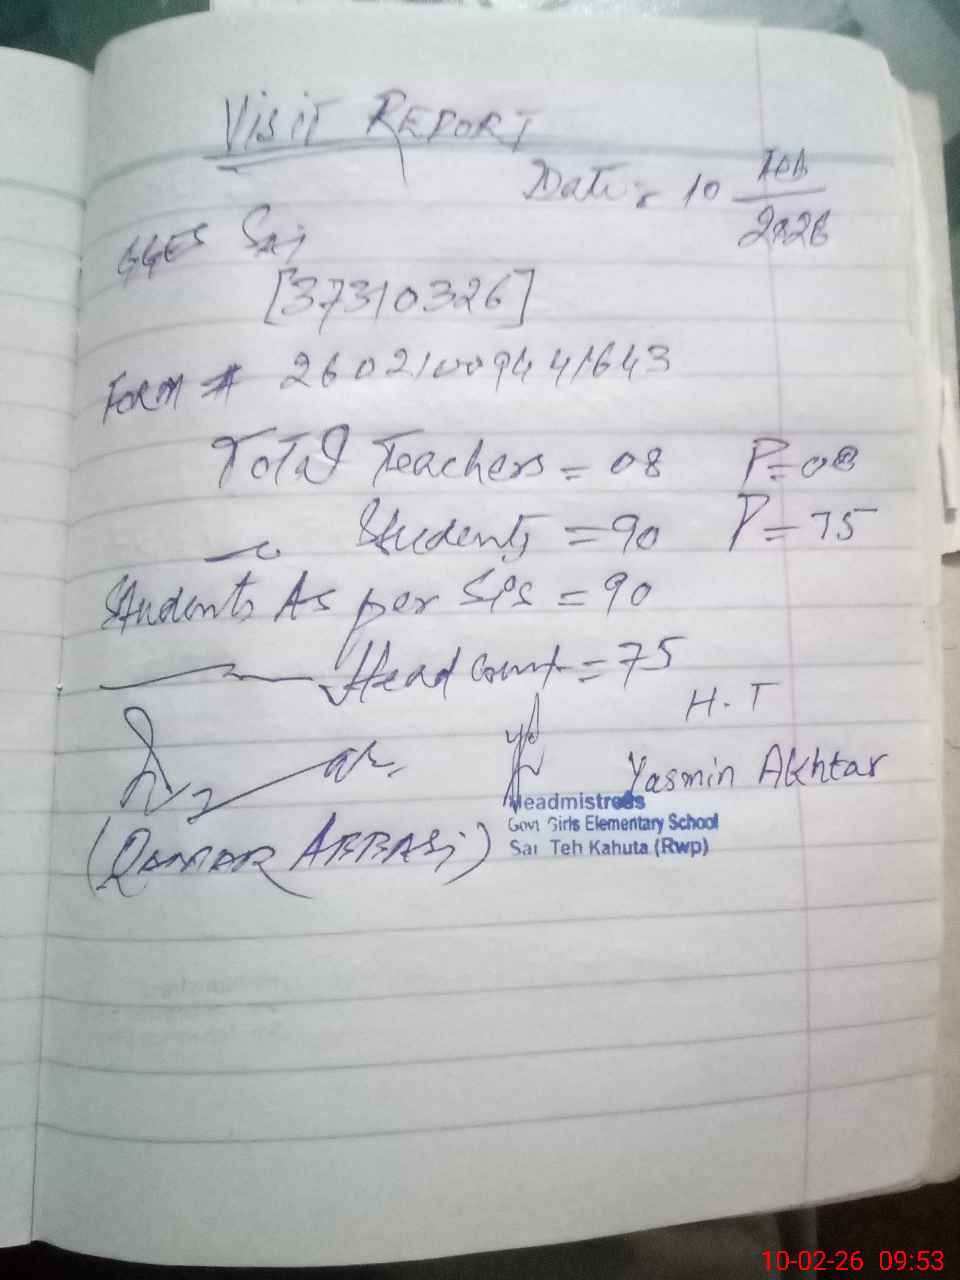 VISIT REPORT
Date: 10 Feb
2026
GGES Sai
[37310326]
FORM # 260210094 41643
Total Teachers = 08 P=08
Students =90 P=75
Students As per Sis =90
Head count =75
H.T
Yasmin Akhtar
Headmistress
Govt Girls Elementary School
Sai Teh Kahuta (Rwp)
(QAMAR ABBASi)
10-02-26 09:53